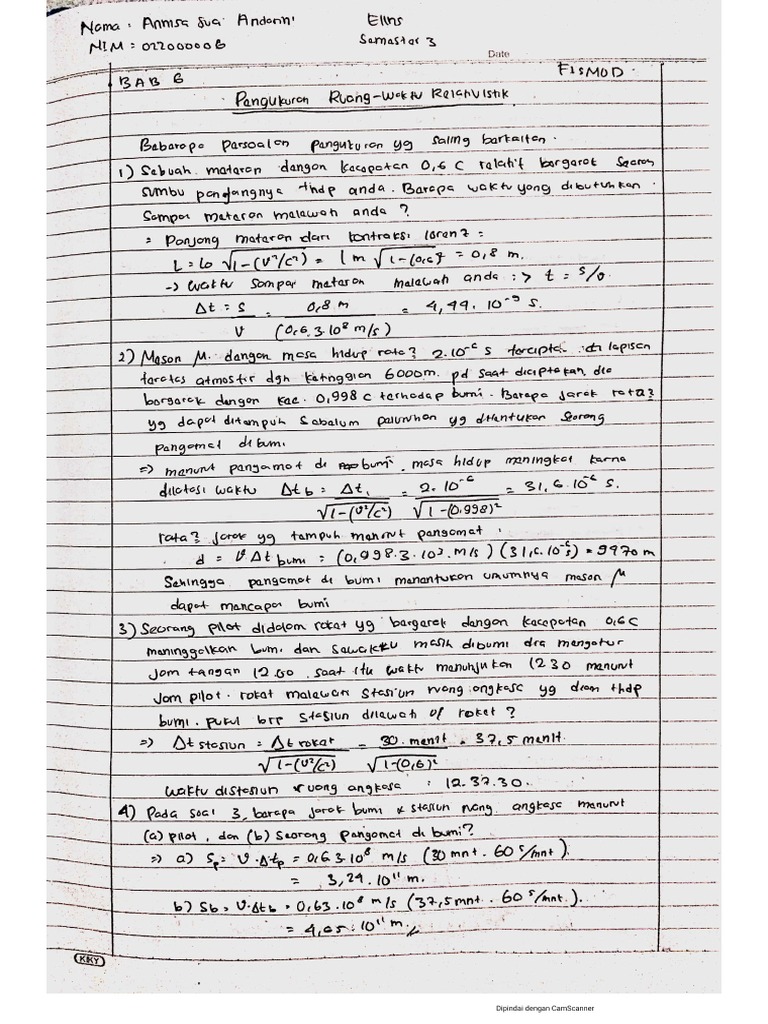 Nama : Annisa Suci Andarini Elins
NIM : 022000006 Semester 3
Date
BAB 6 FISMOD.
Pengukuran Ruang-Waktu Relativistik
Beberapa persoalan pengukuran yg saling berkaitan.
1) Sebuah meteran dengan kecepatan 0,6 C relatif bergerak searah
sumbu panjangnya thdp anda. Berapa waktu yang dibutuhkan
Sampai meteran melewati anda ?
= Panjang meteran dari kontraksi loren z =
L = Lo √1-(V²/c²) = 1 m √1-(0,6)² = 0,8 m.
-> Waktu sampai meteran melewati anda :> t = s/v.
Δt = S = 0,8 m = 4,44. 10⁻⁹ s.
V (0,6.3 10⁸ m/s)
2) Meson μ. dengan masa hidup rata² 2.10⁻⁶ s tercipta di lapisan
teratas atmosfir dgn ketinggian 6000m. pd saat diciptakan, dia
bergerak dengan kec. 0,998 c terhadap bumi. Berapa jarak rata²
yg dapat ditempuh sebelum peluruhan yg ditentukan seorang
pengamat di bumi
=> menurut pengamat di bumi, masa hidup meningkat karna
dilatasi waktu Δtb = Δt, = 2. 10⁻⁶ = 31,6.10⁻⁶ s.
√1-(V²/c²) √1-(0,998)²
rata² jarak yg tempuh menurut pengamat :
d = V.Δt bumi = (0,998.3.10³ m/s) (31,6.10⁻⁶s) = 9470 m
Sehingga pengamat di bumi menentukan umumnya meson μ
dapat mencapai bumi
3) Seorang pilot didalam roket yg bergerak dengan kecepatan 0,6C
meninggalkan bumi dan sewaktu masih dibumi dia mengatur
jam tangan 12.00. saat itu waktu menunjukan 1230 menurut
jam pilot. roket melewati stasiun ruang angkasa yg diam thdp
bumi. pukul brp stasiun dilewati o/ roket ?
=> Δt stasiun = Δt roket = 30. menit = 37,5 menit.
√1-(V²/c²) √1-(0,6)²
Waktu distasiun ruang angkasa : 12.37.30.
4) Pada soal 3, berapa jarak bumi & stasiun ruang angkasa menurut
(a) pilot, dan (b) seorang pengamat di bumi?
=> a) Sp = V.Δtp = 0,63.10⁸ m/s (30 mnt. 60 s/mnt).
= 3,24.10¹¹ m.
b) Sb = V.Δtb = 0,63.10⁸ m/s (37,5mnt. 60 s/mnt.).
= 4,05.10¹¹ m.
KKY
Dipindai dengan CamScanner